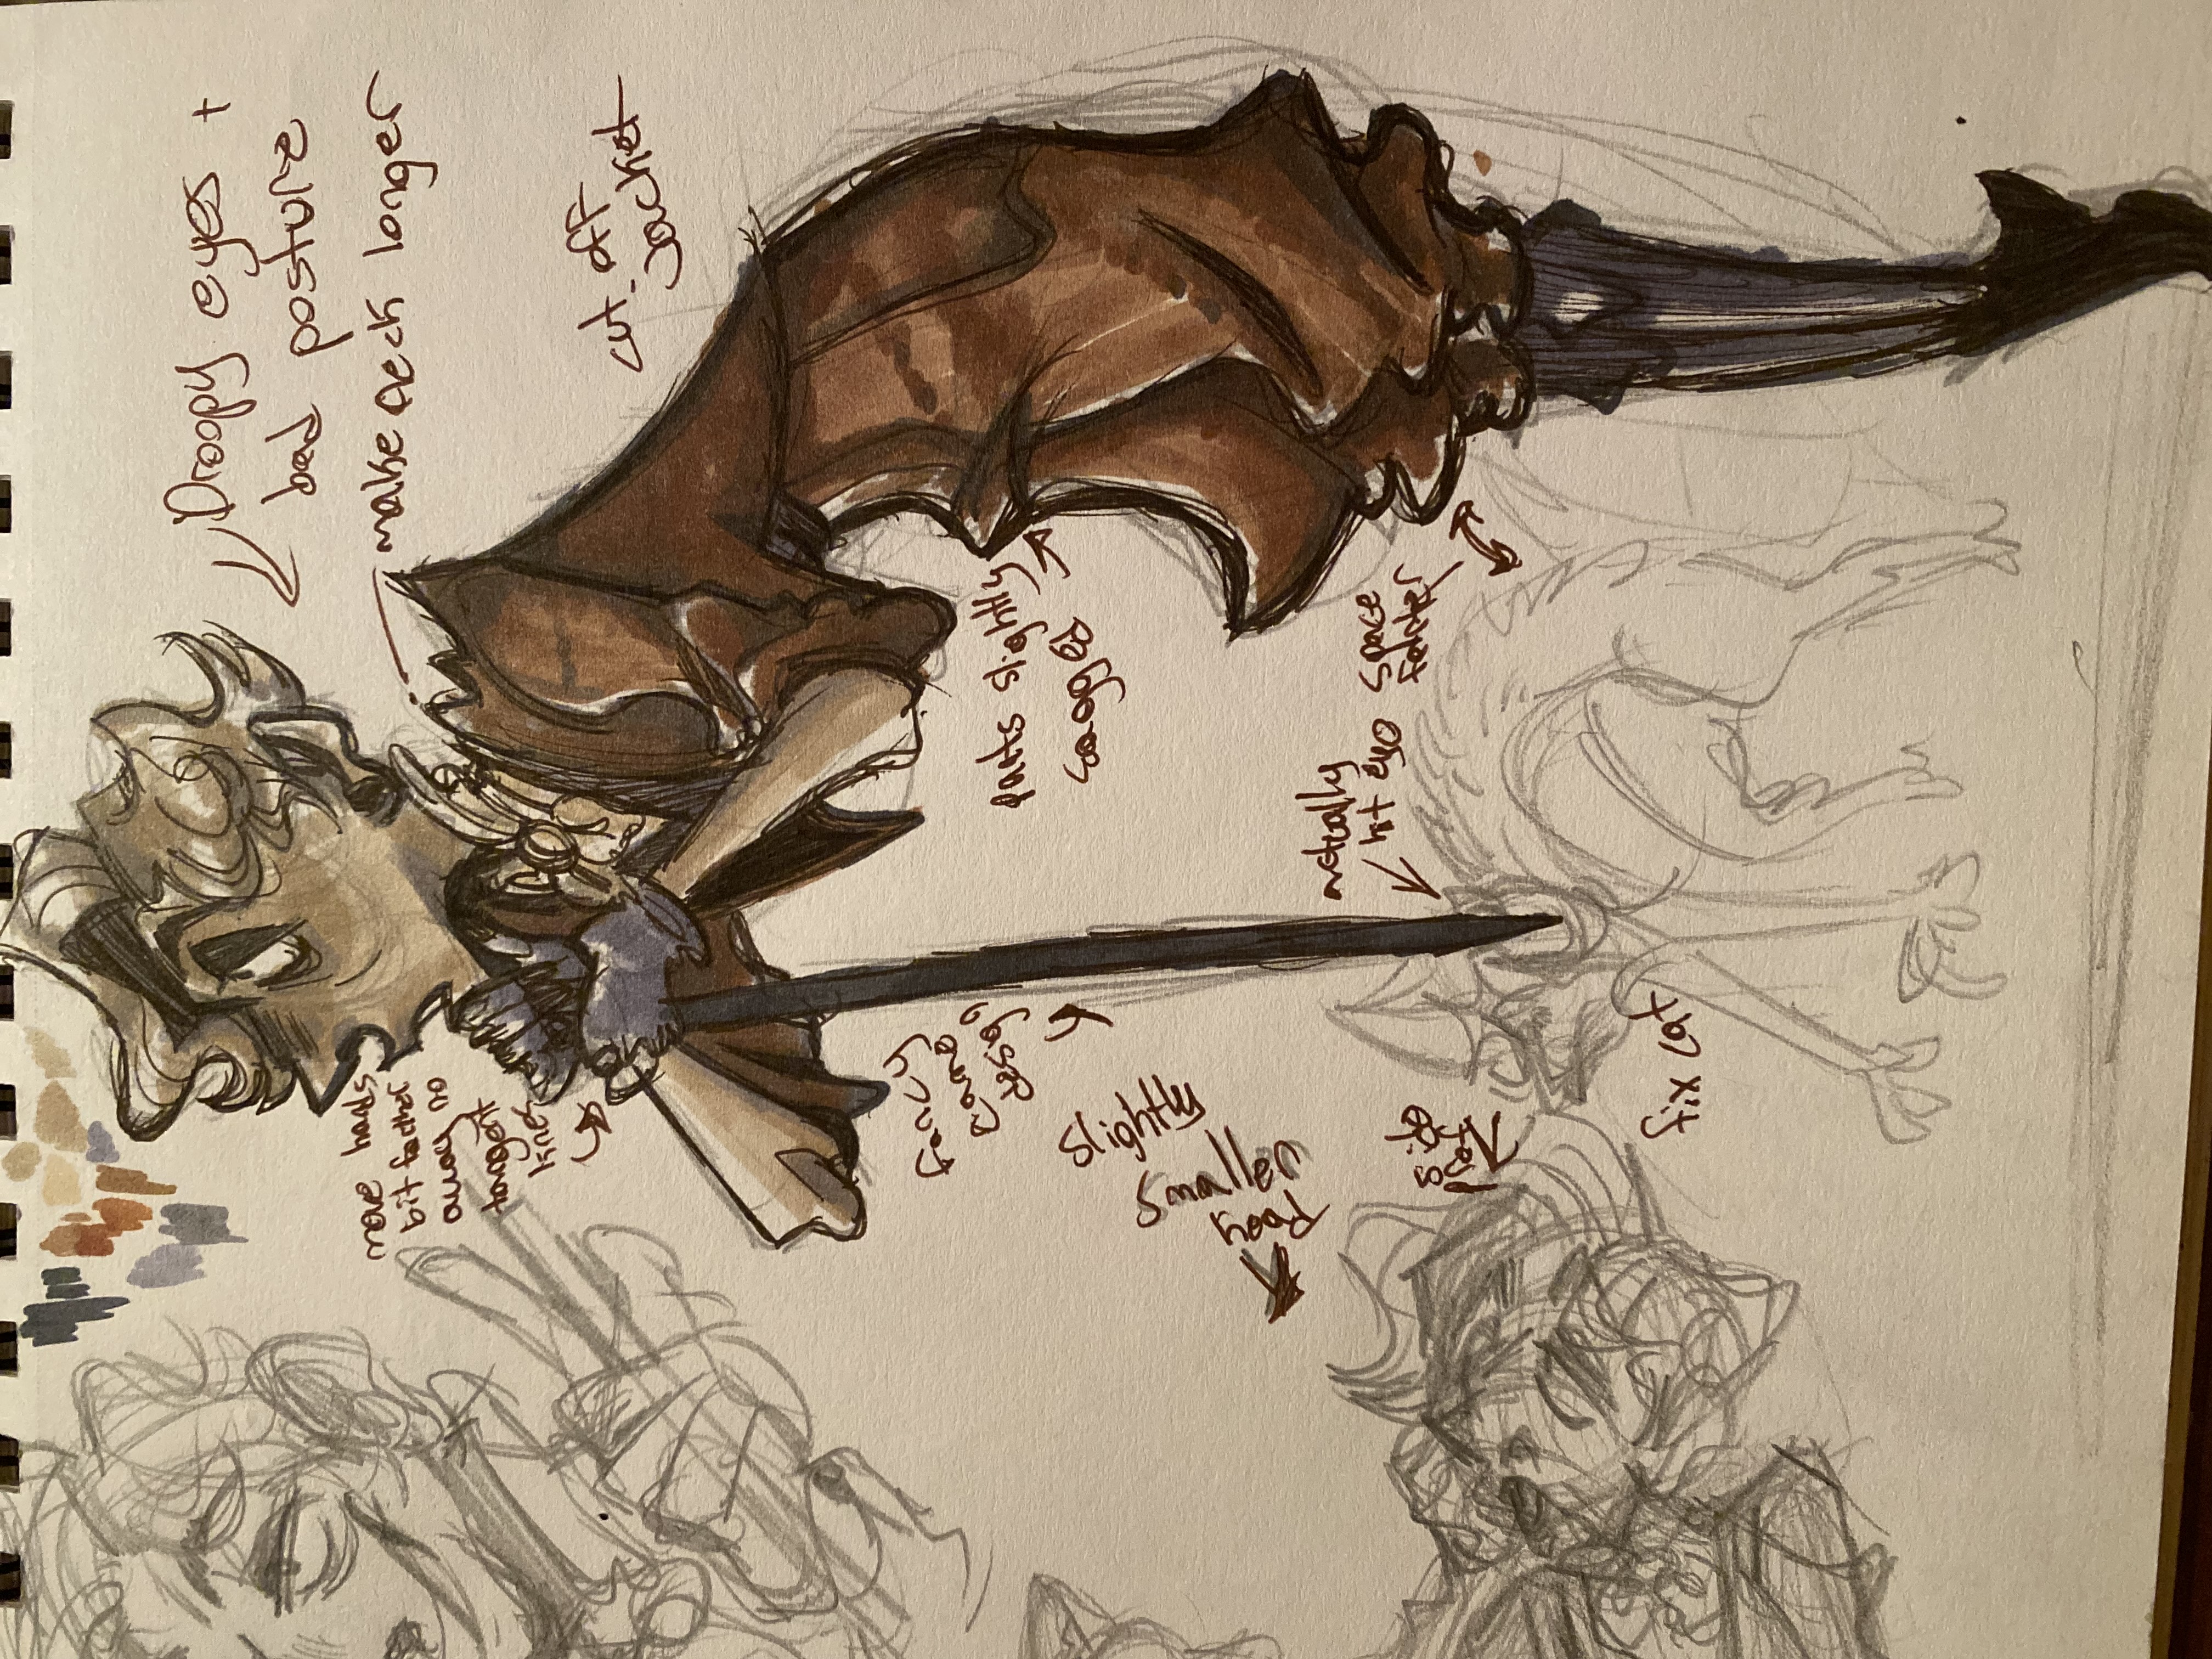 Droopy eyes +
bad posture
make neck longer
move hands
bit farther
away no
tangent
lines
cut off
jacket
fancy
cane
design
pants slightly
sagged
slightly
smaller
head
actually
hit eye
space
farter
side
prof.
fix cat